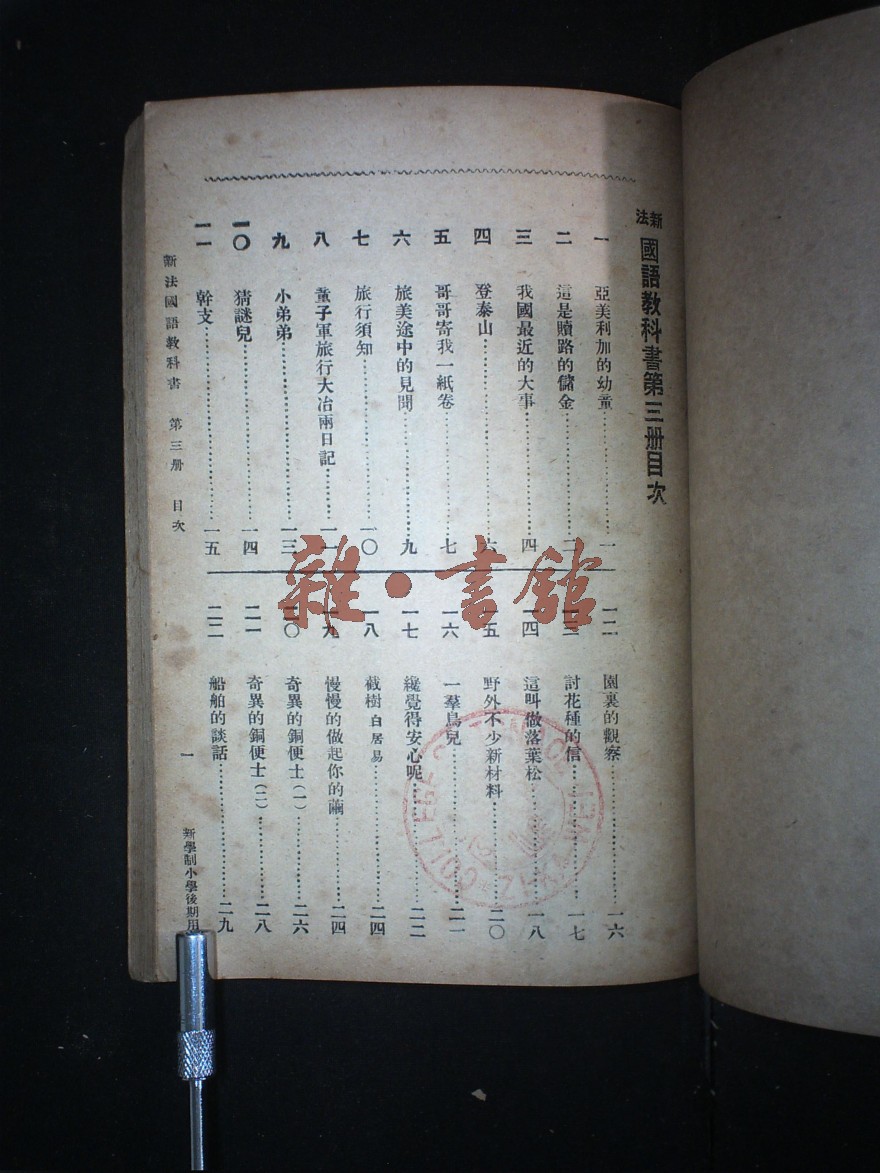 新法 國語教科書第三册目次
一 亞美利加的幼童……一
二 這是贖路的儲金……二
三 我國最近的大事……四
四 登泰山……六
五 哥哥寄我一紙卷……七
六 旅美途中的見聞……九
七 旅行須知……一〇
八 童子軍旅行大冶兩日記……一一
九 小弟弟……一三
一〇 猜謎兒……一四
一一 幹支……一五
一二 園裏的觀察……一六
一三 討花種的信……一七
一四 這叫做落葉松……一八
一五 野外不少新材料……二〇
一六 一羣鳥兒……二一
一七 纔覺得安心呢……二二
一八 截樹 白居易……二四
一九 慢慢的做起你的繭……二四
二〇 奇異的銅便士(一)……二六
二一 奇異的銅便士(二)……二八
二二 船舶的談話……二九
新法國語教科書 第三册 目次
一
新學制小學後期用
雜·書館
COLLEGE ST IGNACE ZI-KA-WEI